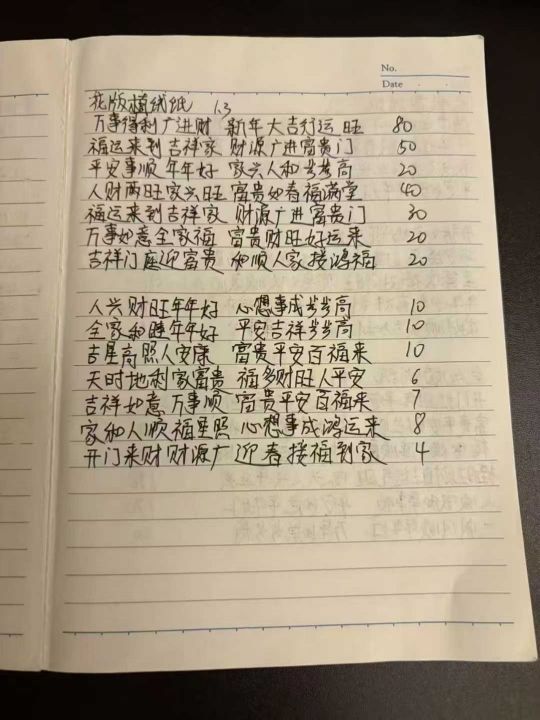 No.
Date
花版植绒纸 1.3
万事得利广进财 新年大吉行运旺 80
福运来到吉祥家 财源广进富贵门 50
平安事顺年年好 家兴人和步步高 20
人财两旺家兴旺 富贵如春福满堂 40
福运来到吉祥家 财源广进富贵门 30
万事如意全家福 富贵财旺好运来 20
吉祥门庭迎富贵 和顺人家接鸿福 20
人兴财旺年年好 心想事成步步高 10
全家和睦年年好 平安吉祥步步高 10
吉星高照人安康 富贵平安百福来 10
天时地利家富贵 福多财旺人平安 6
吉祥如意万事顺 富贵平安百福来 7
家和人顺福星照 心想事成鸿运来 8
开门来财财源广 迎春接福到家 4